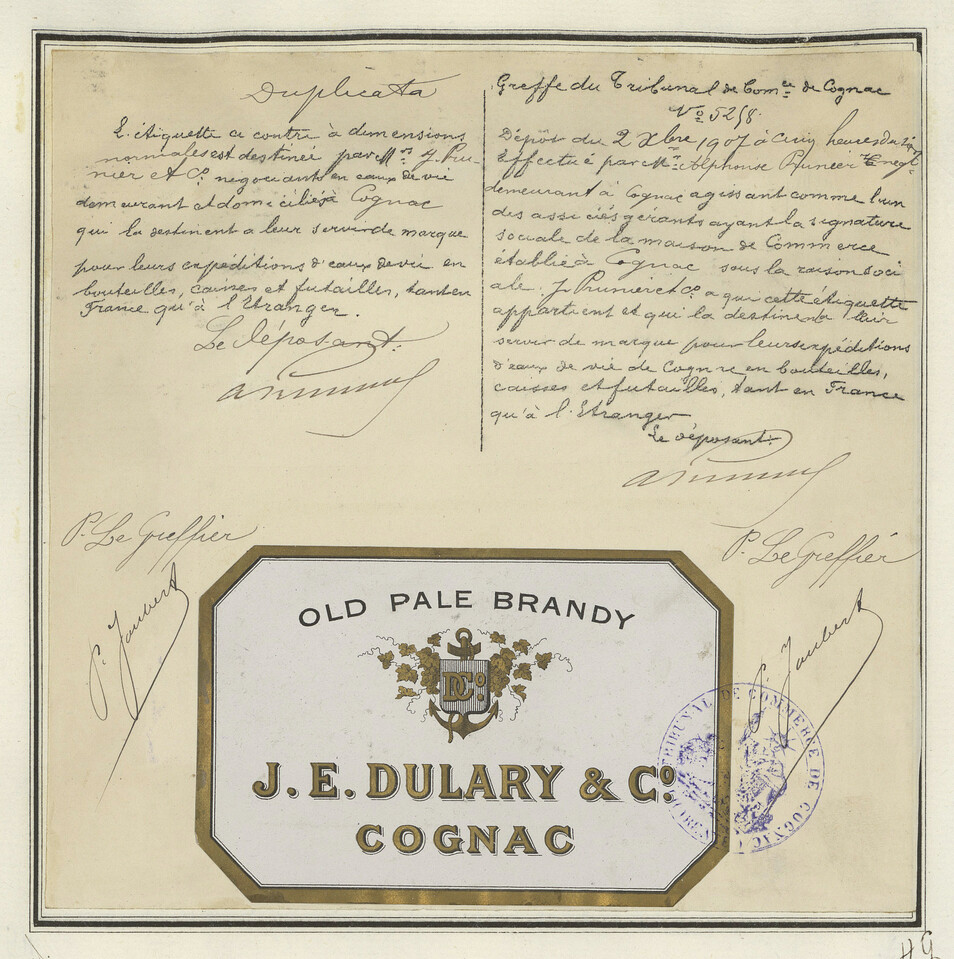 Duplicata
L'étiquette ci contre à dimensions
normales est destinée par MM. J. Pru-
nier et Co. negociants en eaux de vie
demeurant et domiciliés à Cognac
qui la destinent a leur servir de marque
pour leurs expéditions d'eaux de vie en
bouteilles, caisses et futailles, tant en
France qu'à l'Etranger.
Le déposant.
Greffe du Tribunal de Comce de Cognac
No 5258
Dépôt du 2 Xbre 1907 à cinq heures du
Effectué par Mr. Alphonse Prunier negt
demeurant à Cognac agissant comme l'un
des associés gérants ayant la signature
sociale de la maison de Commerce
établie à Cognac sous la raison soci
ale. J. Prunier et Co. a qui cette étiquette
appartient et qui la destinent a leur
servir de marque pour leurs expéditions
d'eaux de vie de Cognac en bouteilles,
caisses et futailles, tant en France
qu'à l'Etranger
Le déposant.
P. Le Greffier
P. Joubert
P. Le Greffier
P. Joubert
OLD PALE BRANDY
D Co
J. E. DULARY & Co.
COGNAC
TRIBUNAL DE COMMERCE DE COGNAC